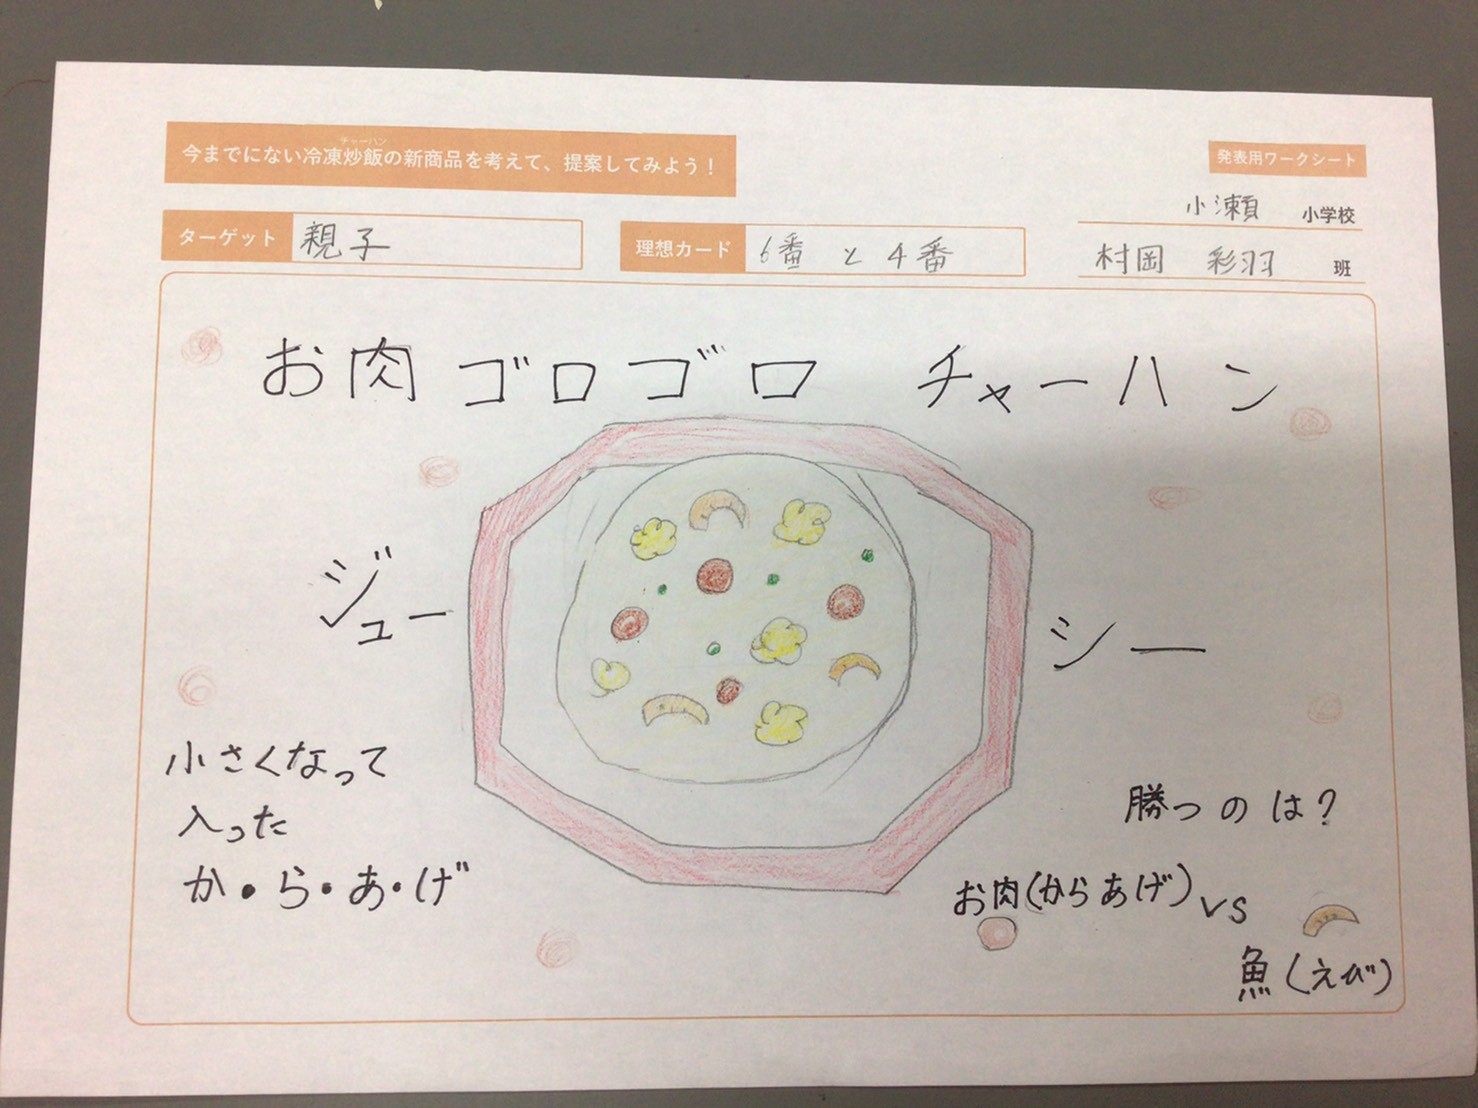 チャーハン
今までにない冷凍炒飯の新商品を考えて、提案してみよう！
発表用ワークシート
小瀬 小学校
ターゲット 親子
理想カード 6番と4番
村岡 彩羽 班
お肉ゴロゴロ チャーハン
ジューシー
小さくなって
入った
か・ら・あ・げ
勝つのは?
お肉(からあげ)vs
魚(えび)